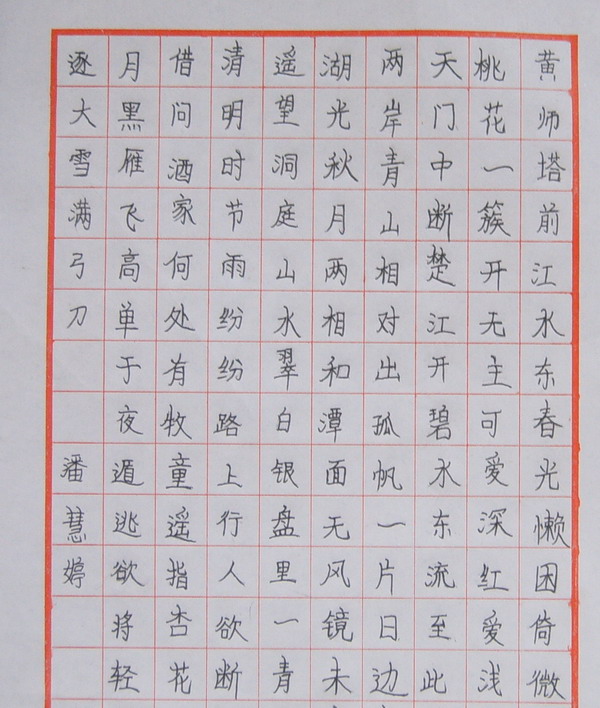 黄师塔前江水东春光懒困倚微
桃花一簇开无主可爱深红爱浅
天门中断楚江开碧水东流至此
两岸青山相对出孤帆一片日边
湖光秋月两相和潭面无风镜未
遥望洞庭山水翠白银盘里一青
清明时节雨纷纷路上行人欲断
借问酒家何处有牧童遥指杏花
月黑雁飞高单于夜遁逃欲将轻
逐大雪满弓刀 潘慧婷